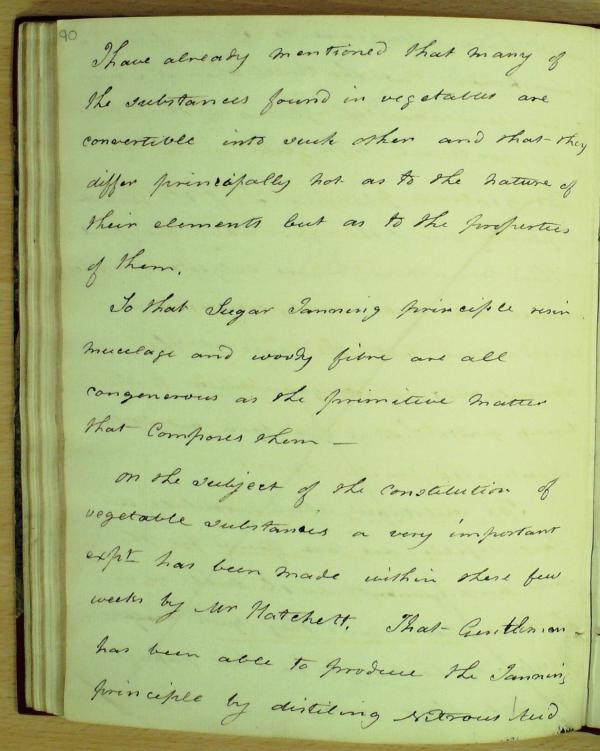 90
I have already mentioned that many of
the substances found in vegetables are
convertible into each other and that they
differ principally not as to the nature of
their elements but as to the properties
of them.
So that Sugar Tanning principle resin
mucilage and woody fibre are all
congenerous as the primitive matter
that Composes them —
on the subject of the constitution of
vegetable substances a very important
expt has been made within these few
weeks by Mr Hatchett. That Gentleman
has been able to produce the Tanning
principle by distilling Nitrous Acid